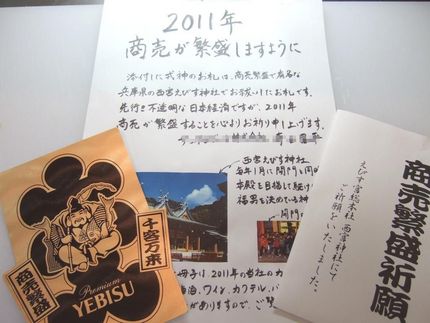 2011年
商売が繁盛しますように
添付した式神のお札は、商売繁盛で有名な
兵庫県の西宮えびす神社でお祓いしたお札です。
先行き不透明な日本経済ですが、2011年
商売が繁盛することを心よりお祈り申し上げます。
西宮えびす神社
毎年1月に開門と同
本殿を目指して駆け
福男を決めている神
開門
冊子は2011年の当社のカ
酒、ワイン、カクテル、バ
がありますので、ご覧
千客万来
商売繁盛
Premium
YEBISU
えびす宮総本社 西宮神社にて
ご祈願をいたしました。
商売繁盛祈願